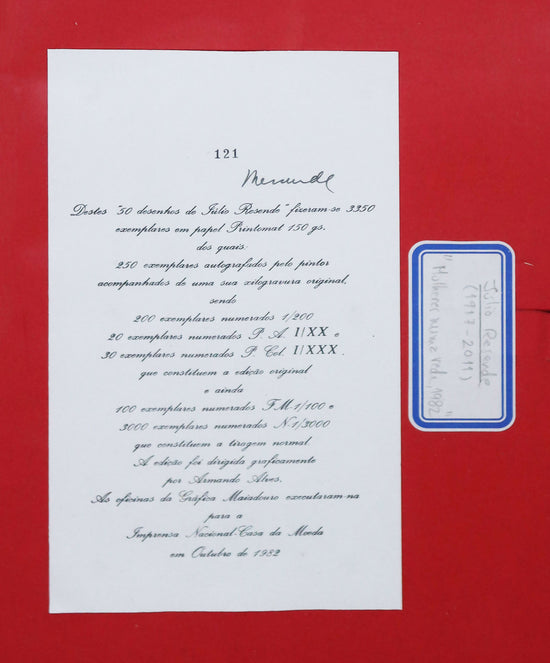 121
Destes "50 desenhos de Júlio Resende" fizeram-se 3350
exemplares em papel Printomat 150 gs.
dos quais:
250 exemplares autografados pelo pintor
acompanhados de uma sua xilogravura original,
sendo
200 exemplares numerados 1/200
20 exemplares numerados P. A. I/XX e
30 exemplares numerados P. Col. I/XXX,
que constituem a edição original
e ainda
100 exemplares numerados F.M.1/100 e
3000 exemplares numerados N.1/3000
que constituem a tiragem normal
A edição foi dirigida graficamente
por Armando Alves.
As oficinas da Gráfica Maiadouro executaram-na
para a
Imprensa Nacional-Casa da Moeda
em Outubro de 1982
Júlio Resende
(1917-2011)
"Mulheres 1982"